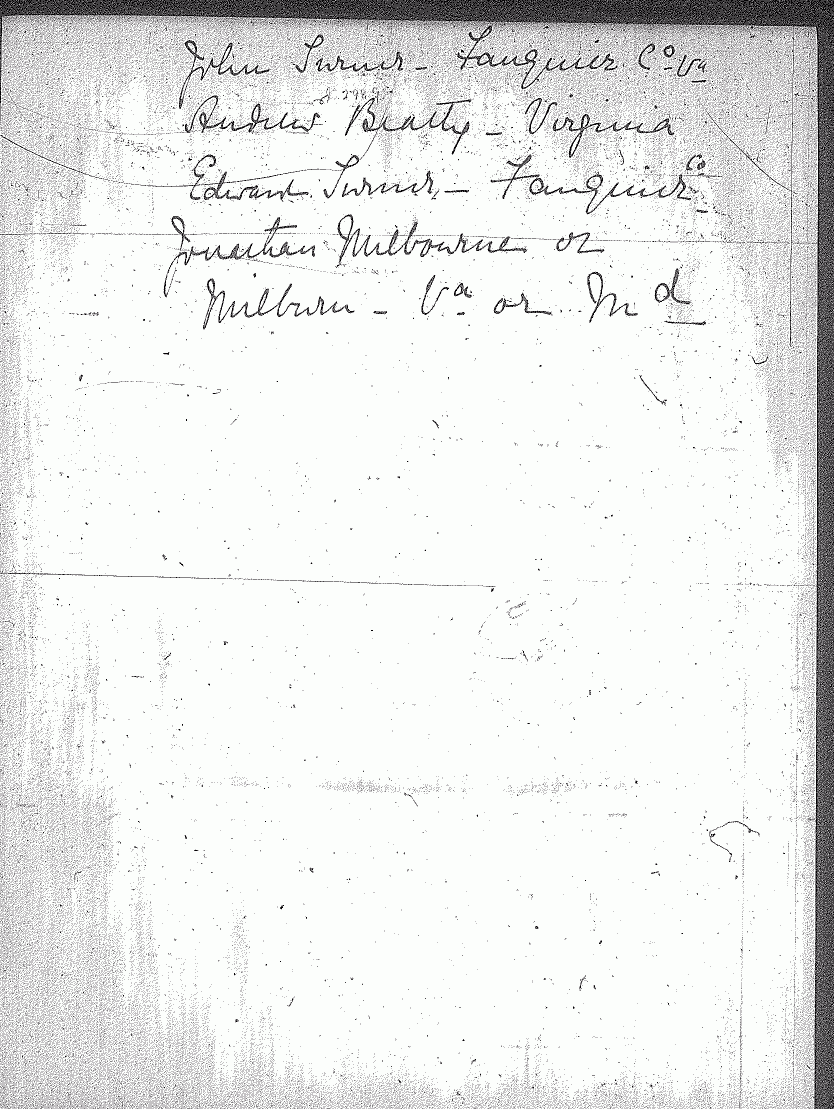 John Turner - Fauquier Co Va
Andrew Beatty - Virginia
Edward Turner, - Fauquier Co
Jonathan Milbourne or
Milburn - Va or Md